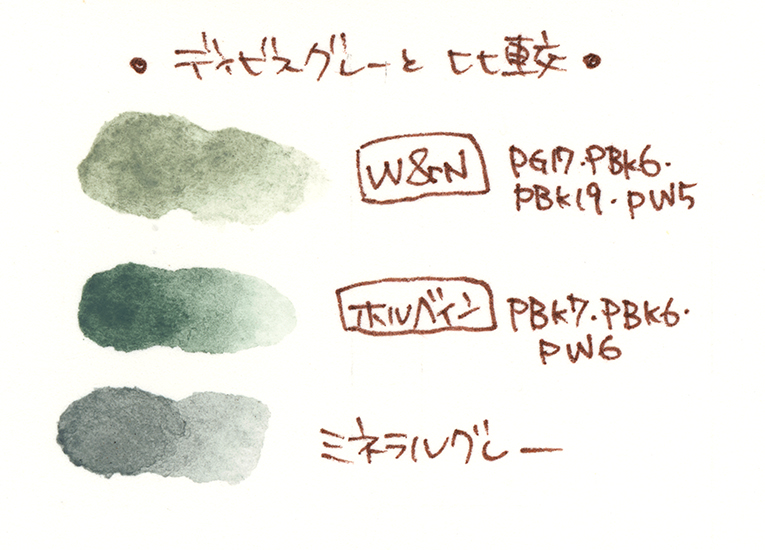 • デイビスグレーと 比較 •
W&N
PG17・PBk6・
PBk19・PW5
ホルベイン
PBk7・PBk6・
PW6
ミネラルグレー